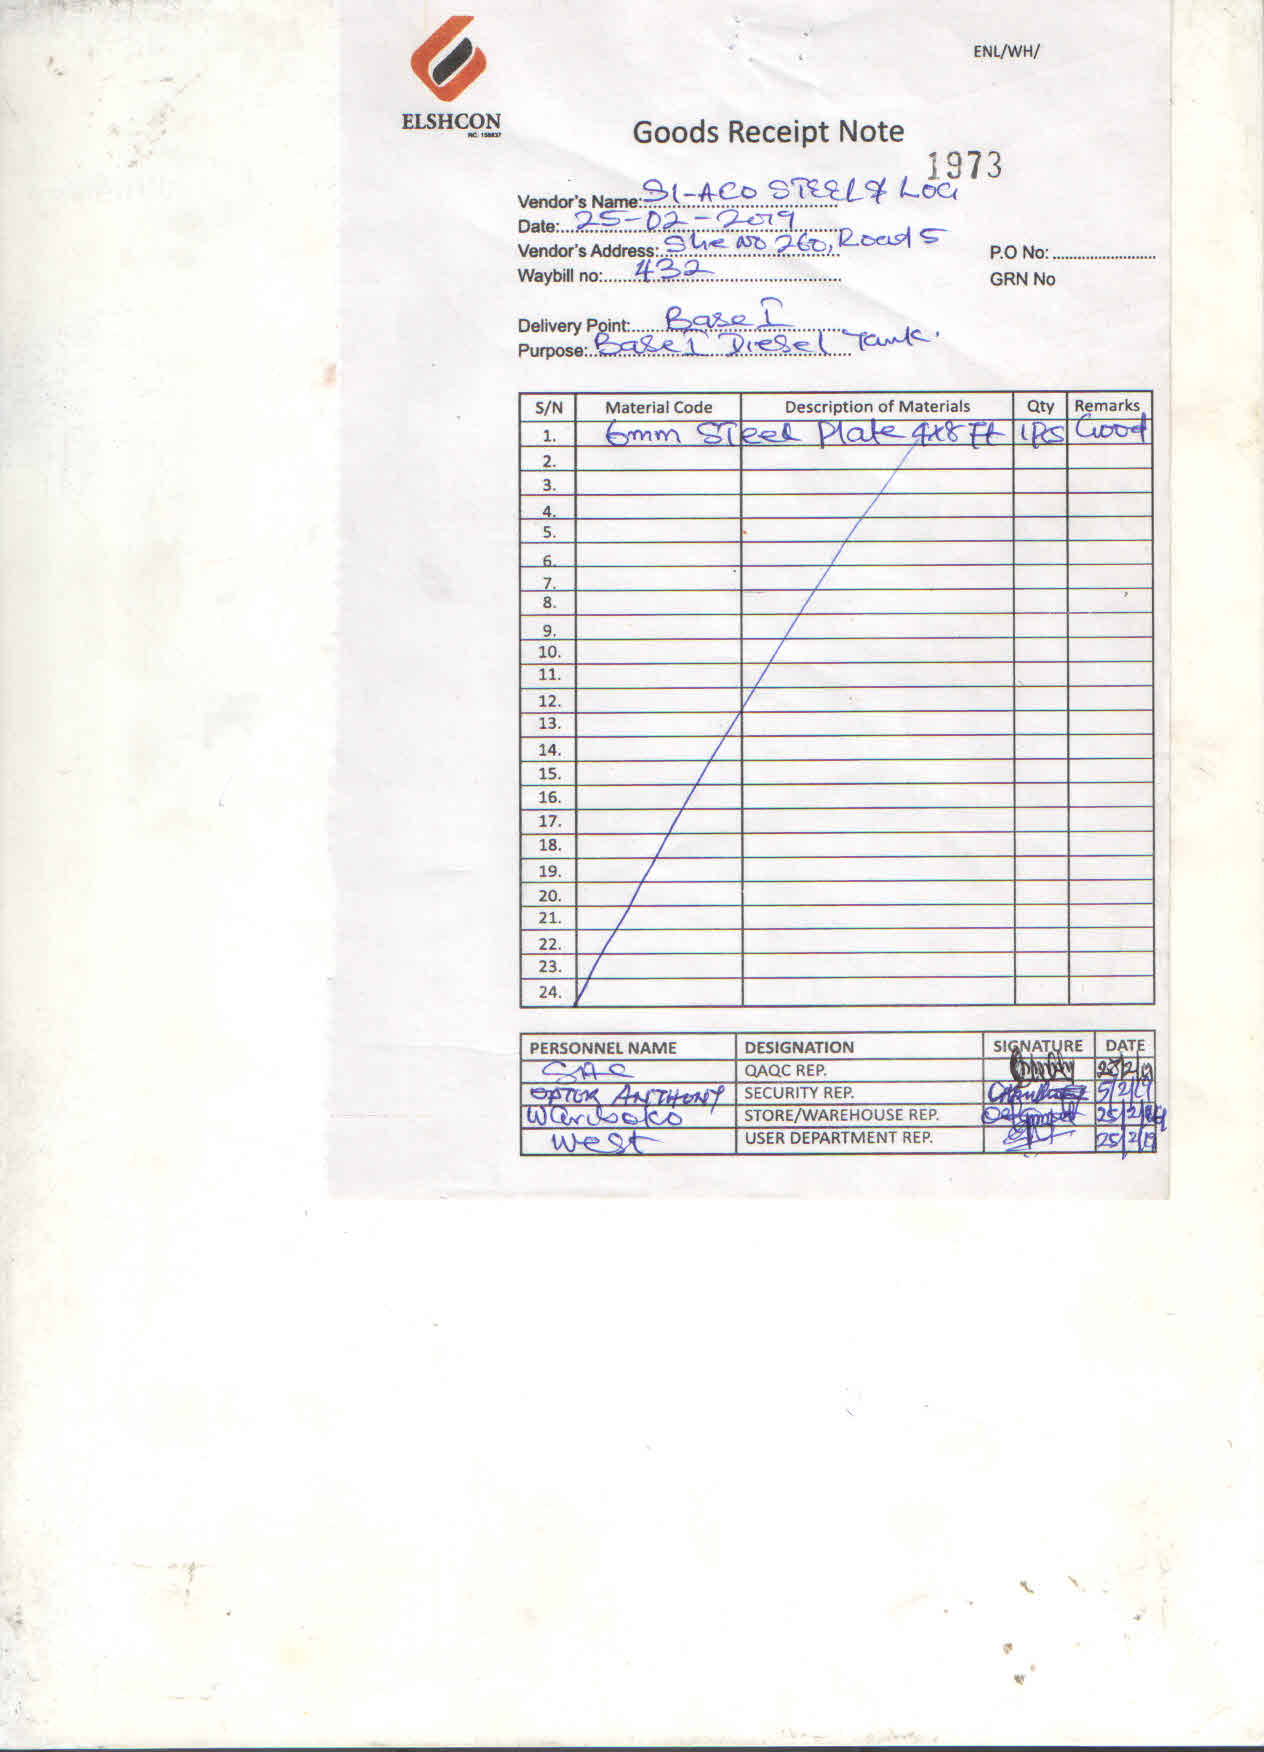 ENL/WH/
ELSHCON
RC: 158837
Goods Receipt Note
1973
Vendor's Name: SI-ACO STEEL & LOG
Date: 25-02-2019
Vendor's Address: No 260, Road 5
P.O No:
Waybill no: 432
GRN No
Delivery Point: Base I
Purpose: Base I Diesel Tank.
S/N Material Code Description of Materials Qty Remarks
1. 6mm STeel Plate 4x8 Ft 1Pcs Good
2.
3.
4.
5.
6.
7.
8.
9.
10.
11.
12.
13.
14.
15.
16.
17.
18.
19.
20.
21.
22.
23.
24.
PERSONNEL NAME DESIGNATION SIGNATURE DATE
QAQC REP.
ANTHONY SECURITY REP.
Wariboko STORE/WAREHOUSE REP.
West USER DEPARTMENT REP. 25/2/19